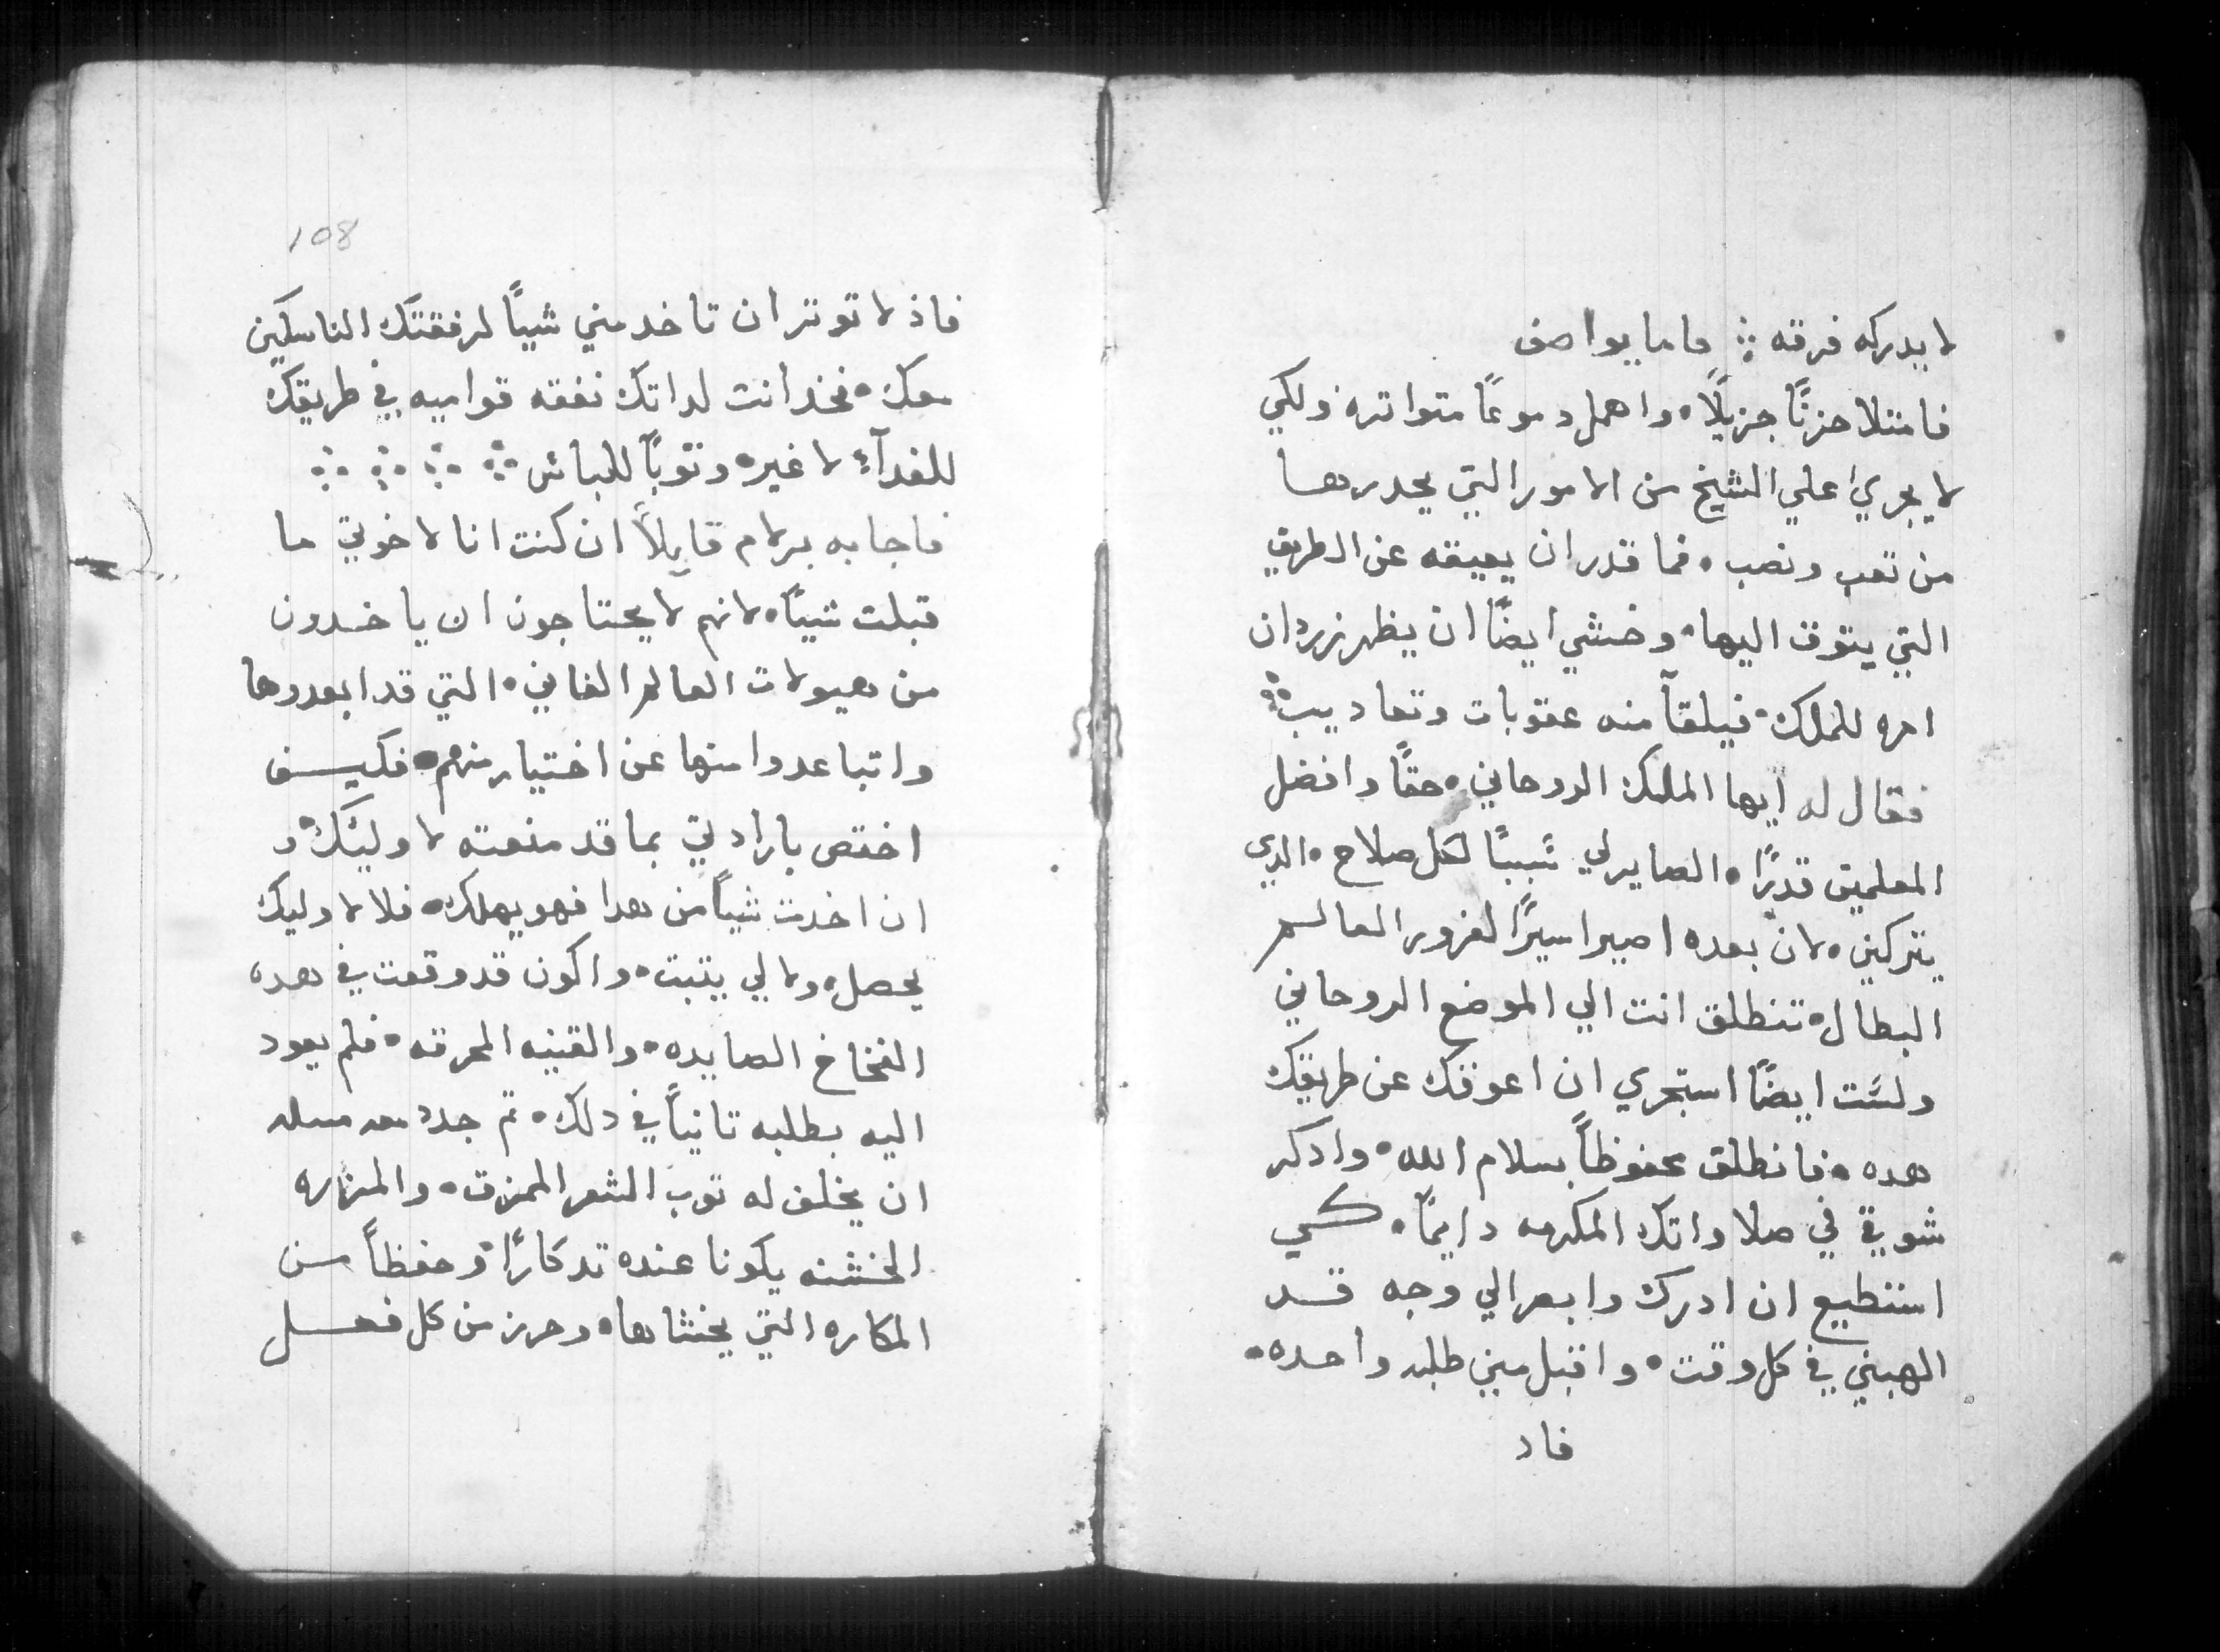 لا يدركه فرقه ⁘ فاما يواصف
فامتلا حزنًا جزيلًا ، واهمل دموعًا متواتره ولكي
لا يجري علي الشيخ من الامور التي يحدرها
من تعب ونصب ، فما قدر ان يعيقه عن الطريق
التي يتوق اليها ، وخشي ايضًا ان يظهر زردان
امره للملك ، فيلقآ منه عقوبات وتعاديب ⁘
فقال له ايها الملك الروحاني ، حقًا وافضل
المعلمين قدرًا ، الصاير لي سَببًا لكل صلاح ، الدي
يتركني ، لان بعده اصير اسيرًا لغرور العالم
البطال ، تنطلق انت الي الموضع الروحاني
ولسَت ايضًا استجري ان اعوقك عن طريقك
هده ، فانطلق محفوظاً بسلام الله ، وادكر
شوقي في صلاواتك المكرمه دايمًا ، كي
استطيع ان ادرك وابصر الي وجه قد
الهبني في كل وقت ، واقبل مني طلبه واحده ،
فاد
108
فاذ لا توتر ان تاخد مني شيئًا لرفقتك الناسكين
معك ، فخد انت لداتك نفقه قواميه في طريقك
للغدآء لا غيره وتوباً للباس ⁘ ⁘ ⁘ ⁘
فاجابه برلام قايلاً ان كنت انا لاخوتي ما
قبلت شيئًا ، لانهم لا يحتاجون ان ياخدون
من هيولات العالم الفاني ، التي قد ابعدوها
واتباعدوا منها عن اختيار منهم ، فكيف
اختص بارادتي بما قد منعته لاوليَك ، و
ان اخدت شياً من هدا فهو يهلك ، فلا لاوليك
يحصل ، ولا لي يتبت ، واكون قد وقعت في هده
الفخاخ الصايده ، والقنيه المحرقه ، فلم يعود
اليه بطلبه تانياً في دلك ، تم جدد معه مسله
ان يخلف له توب الشعر الممزق ، والمزاره
الخشنه يكونا عنده تدكارًا وحفظاً من
المكاره التي يخشاها ، وحرز من كل فعل